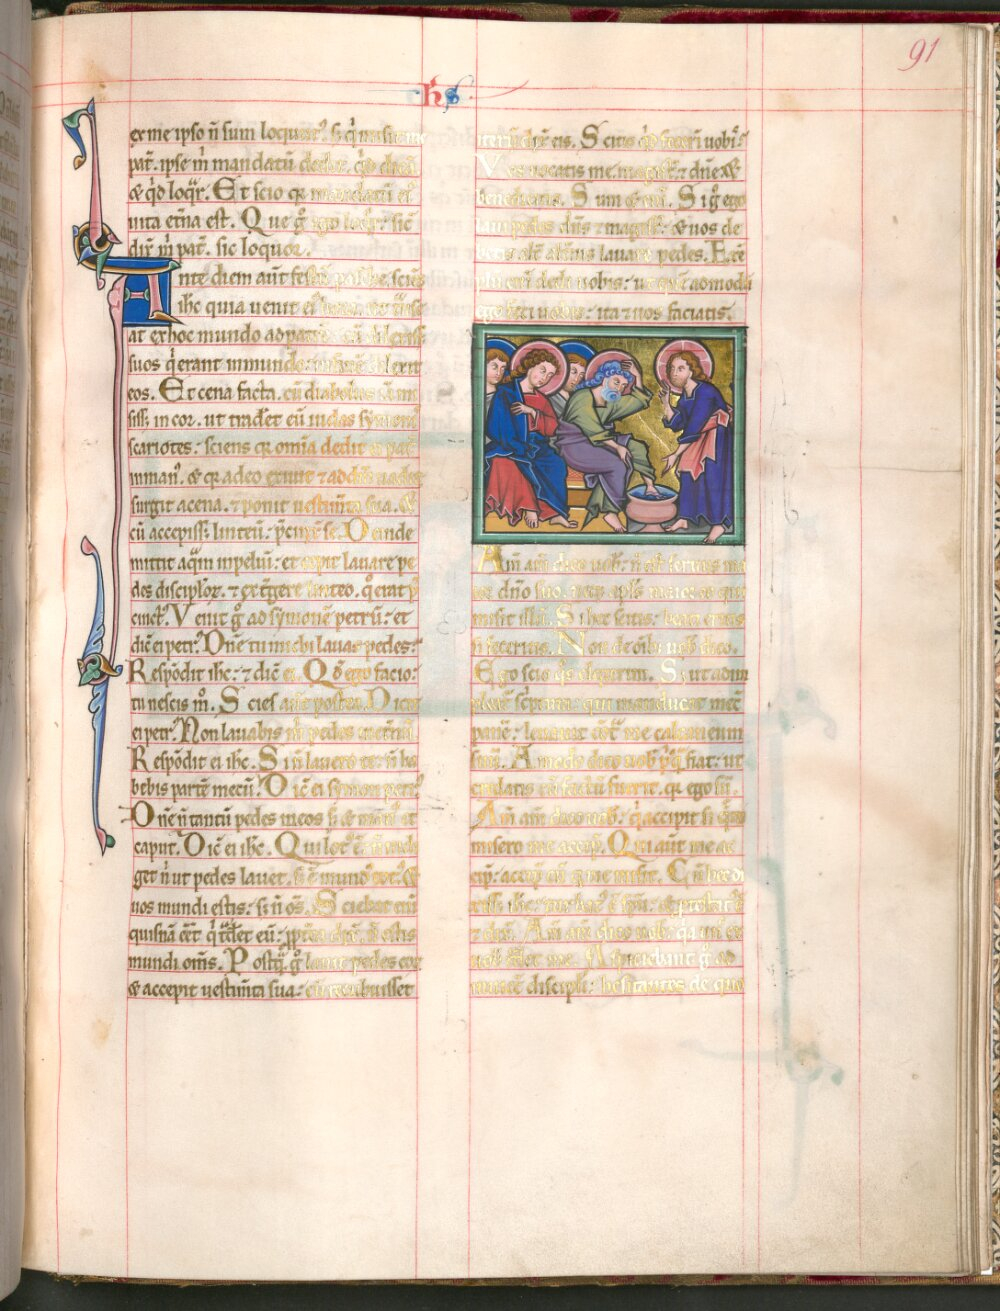 91
ihs
ex me ipso n̄ sum locutus. s; q̇ misit me
pat̄. ipse m̄ mandatū dedit. qđ dicā
& qđ loqr̄. Et scio qꝛ mandatū ei᾽
uita etn̄a est. Que g̊ ego loqr̄: sic̄
dix̄ m̄ pat̄. sic loquor.
Ante diem aūt festū pasche. sciēs
ihc̄ quia uenit
at ex hoc mundo ad patrē. cū dilexiss;
suos q̇ erant in mundo: in finē dilexit
eos. Et cena facta. cū diabolus iā mi
siss; in cor. ut trad̾et eū iudas symonis
scariotes: sciens qꝛ om̄ia dedit ei pat̄
in man᾽. & qꝛ a deo exiuit & ad dm̄ uadit:
surgit a cena. ⁊ ponit uestim̄ta sua. &
cū accepiss; linteū: p̄cinx̄ se. Deinde
mittit aq̄m in peluī: et cepit lauare pe
des discipl̄oꝝ. ⁊ ext̾gere linteo. q̊ erat p̄
cinct᾽. Venit g̊ ad symonē petrū: et
dic̄ ei petr᾽. Dn̄e tu michi lauas pedes:
Respōdit ihc̄: ⁊ dic̄ ei. Qđ ego facio:
tu nescis m̊. Scies aūt postea. Dicit
ei petr᾽. Non lauabis m̄ pedes in et̾nū.
Respōdit ei ihc̄. Si n̄ lauero te: n̄ ha
bebis partē mecū. Dic̄ ei symon petr᾽.
Dn̄e n̄ tantū pedes meos s; & man᾽ et
caput. Dic̄ ei ihc̄. Qui lot᾽ ē: n̄ indi
get n̄ ut pedes lauet. s; ē mund᾽ tot᾽. &
uos mundi estis: s; n̄ om̄s. Sciebat eni
quisnā eēt q̇ trad̾et eū: ppt̾ea dix̄. n̄ estis
mundi om̄s. Postq̄ g̊ lauit pedes eoꝝ
& accepit uestim̄ta sua: cū recubuisset
iterū dix̄ eis. Scitis qđ fecerī uobis:
Vos uocatis me magist̾: ⁊ dn̄e. &
bene dicitis. Sum & eni. Si g̊ ego
laui pedes dn̄s ⁊ magist̾: & uos de
betis alt̾ alt̾ius lauare pedes. Exē
plū eni dedi uobis: ut quē admodū
ego feci uobis: ita ⁊ uos faciatis.
Am̄ am̄ dico uob̄: n̄ est seruus ma
ior dn̄o suo. neqꝫ apl̄s maior eo qui
misit illū. Si hec scitis: beati eritis
si feceritis. Non de om̄ib; uob̄ dico.
Ego scio qs̄ elegerim. S; ut adim
pleat̾ sc̾ptura: qui manducat mecū
panē: leuauit cōt̾ me calcaneum
suū. Amodo dico uob̄ p̾usq̄ fiat: ut
credatis cū factū fuerit. qꝛ ego sū.
Am̄ am̄ dico uob̄: q̇ accipit si quē
misero me accip̄. Qui aūt me ac
cip̄: accip̄ eū q̇ me misit. Cū hec di
xiss; ihc̄: turbat᾽ ē spū: & p̾testat᾽ ē
⁊ dix̄. Am̄ am̄ dico uob̄: qꝛ un᾽ ex
uob̄ t̾det me. Aspiciebant g̊ ad
inuicē discipl̄i: hesitantes de quo